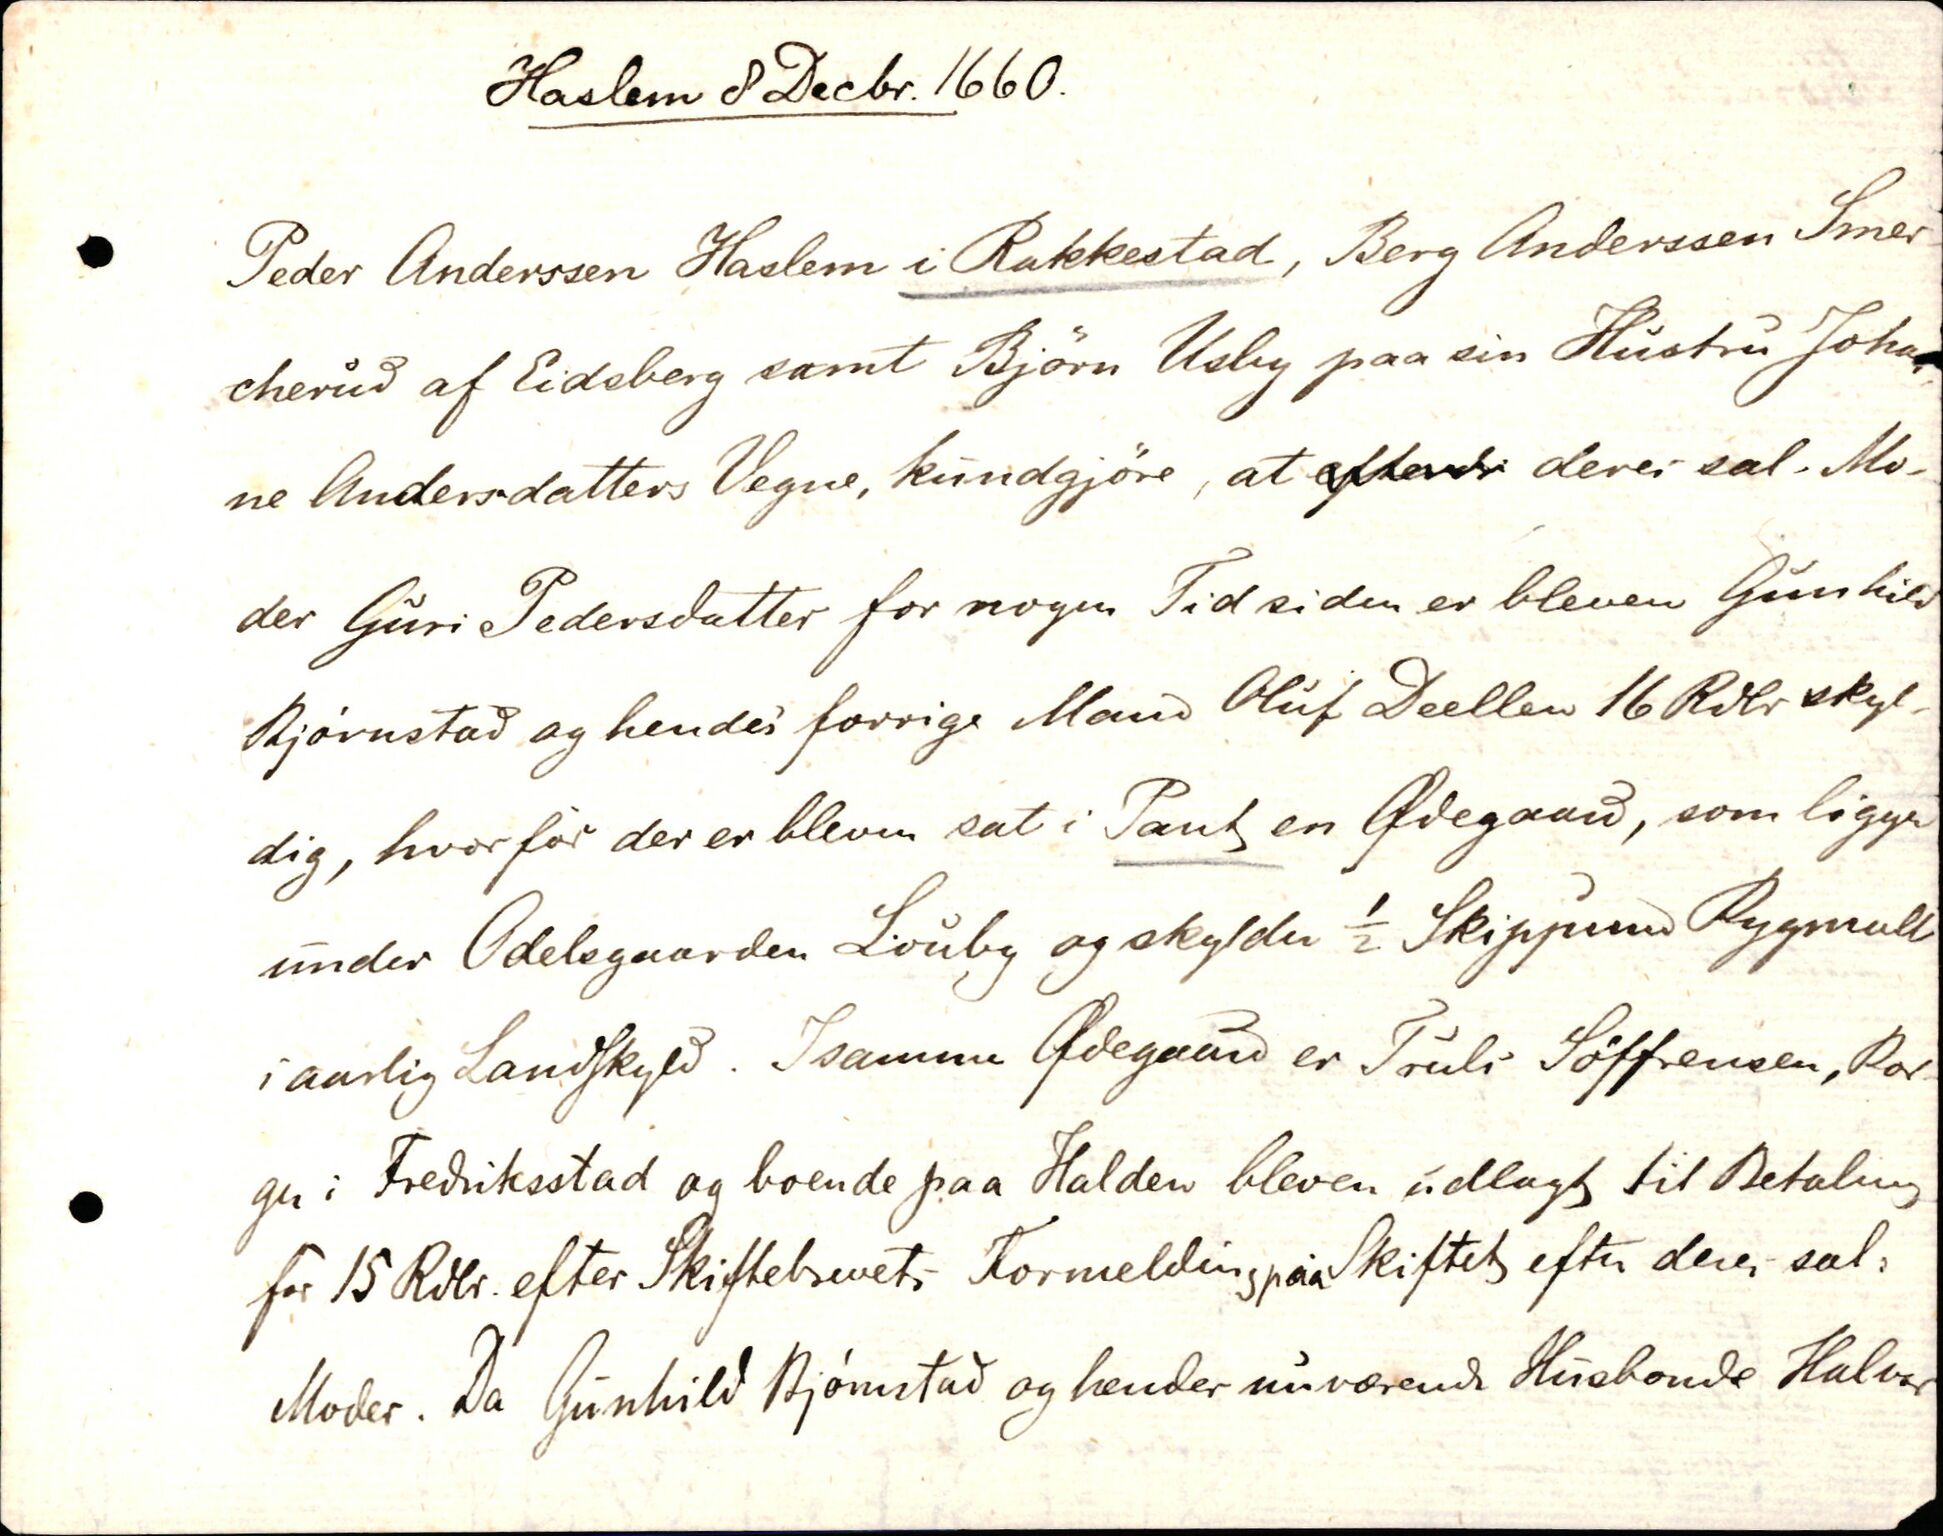 Haslem 8 Decbr. 1660.
Peder Anderssen Haslem i Rakkestad, Berg Anderssen Smer-
cherud af Eidsberg samt Björn Usby paa sin Hustru Johan-
ne Andersdatters Vegne, kundgjöre, at deres sal. Mo-
der Guri Pedersdatter for nogen Tid siden er bleven Gunhild
Bjørnstad og hendes forrige Mand Oluf Deellen 16 Rdlr skyl-
dig, hvorfor der er bleven sat i Pant en Ødegaard, som ligger
under Odelsgaarden Louby og skylder ½ Skippund Rygmell
i aarlig Landskyld. I samme Ødegaard er Truls Söffrensen, Bor-
ger i Fredriksstad og boende paa Halden bleven udlagt til Betaling
for 15 Rdlr. efter Skiftebrevets Formelding paa Skiftet efter deres sal:
Moder. Da Gunhild Bjørnstad og hendes nuværende Husbonde Halvor